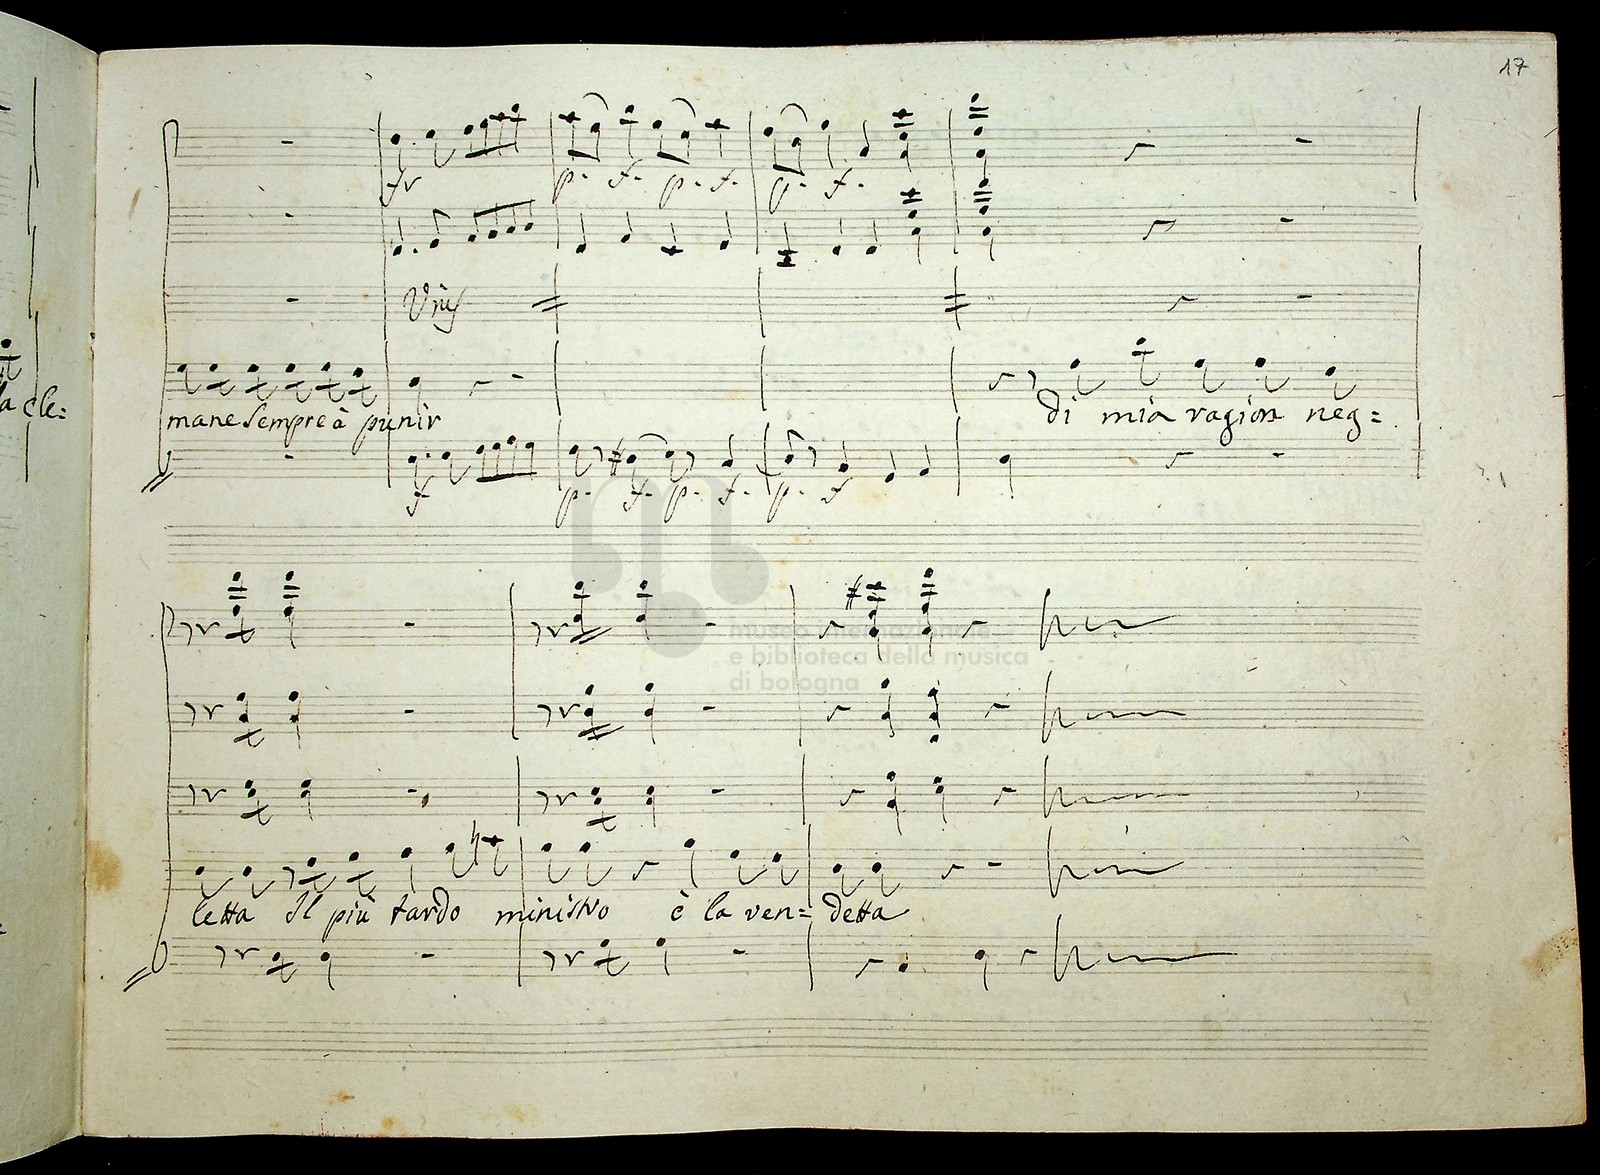 17
fr
p. f. p. f. p. f.
a cle=
mane sempre à punir di mia ragion neg=
f p. f. p. f. p. f
museo internazionale
e biblioteca della musica
di bologna
letta Il più tardo ministro è la ven= detta